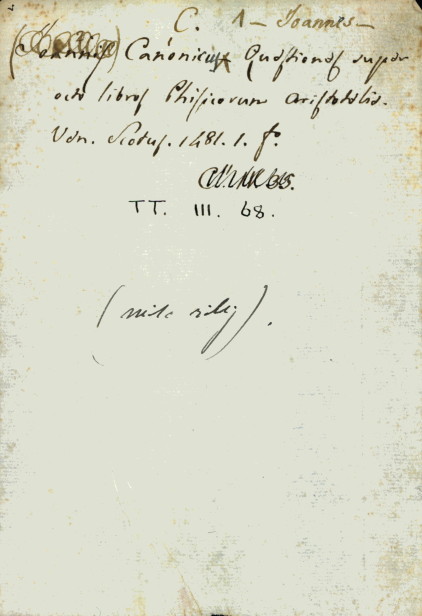 C. 1 - Joannes -
Joannis Canonicus Quæstiones super
octo libros Phisicorum aristotelis.
Ven. Scotus. 1481. 1. fo.
TT. III. 68.